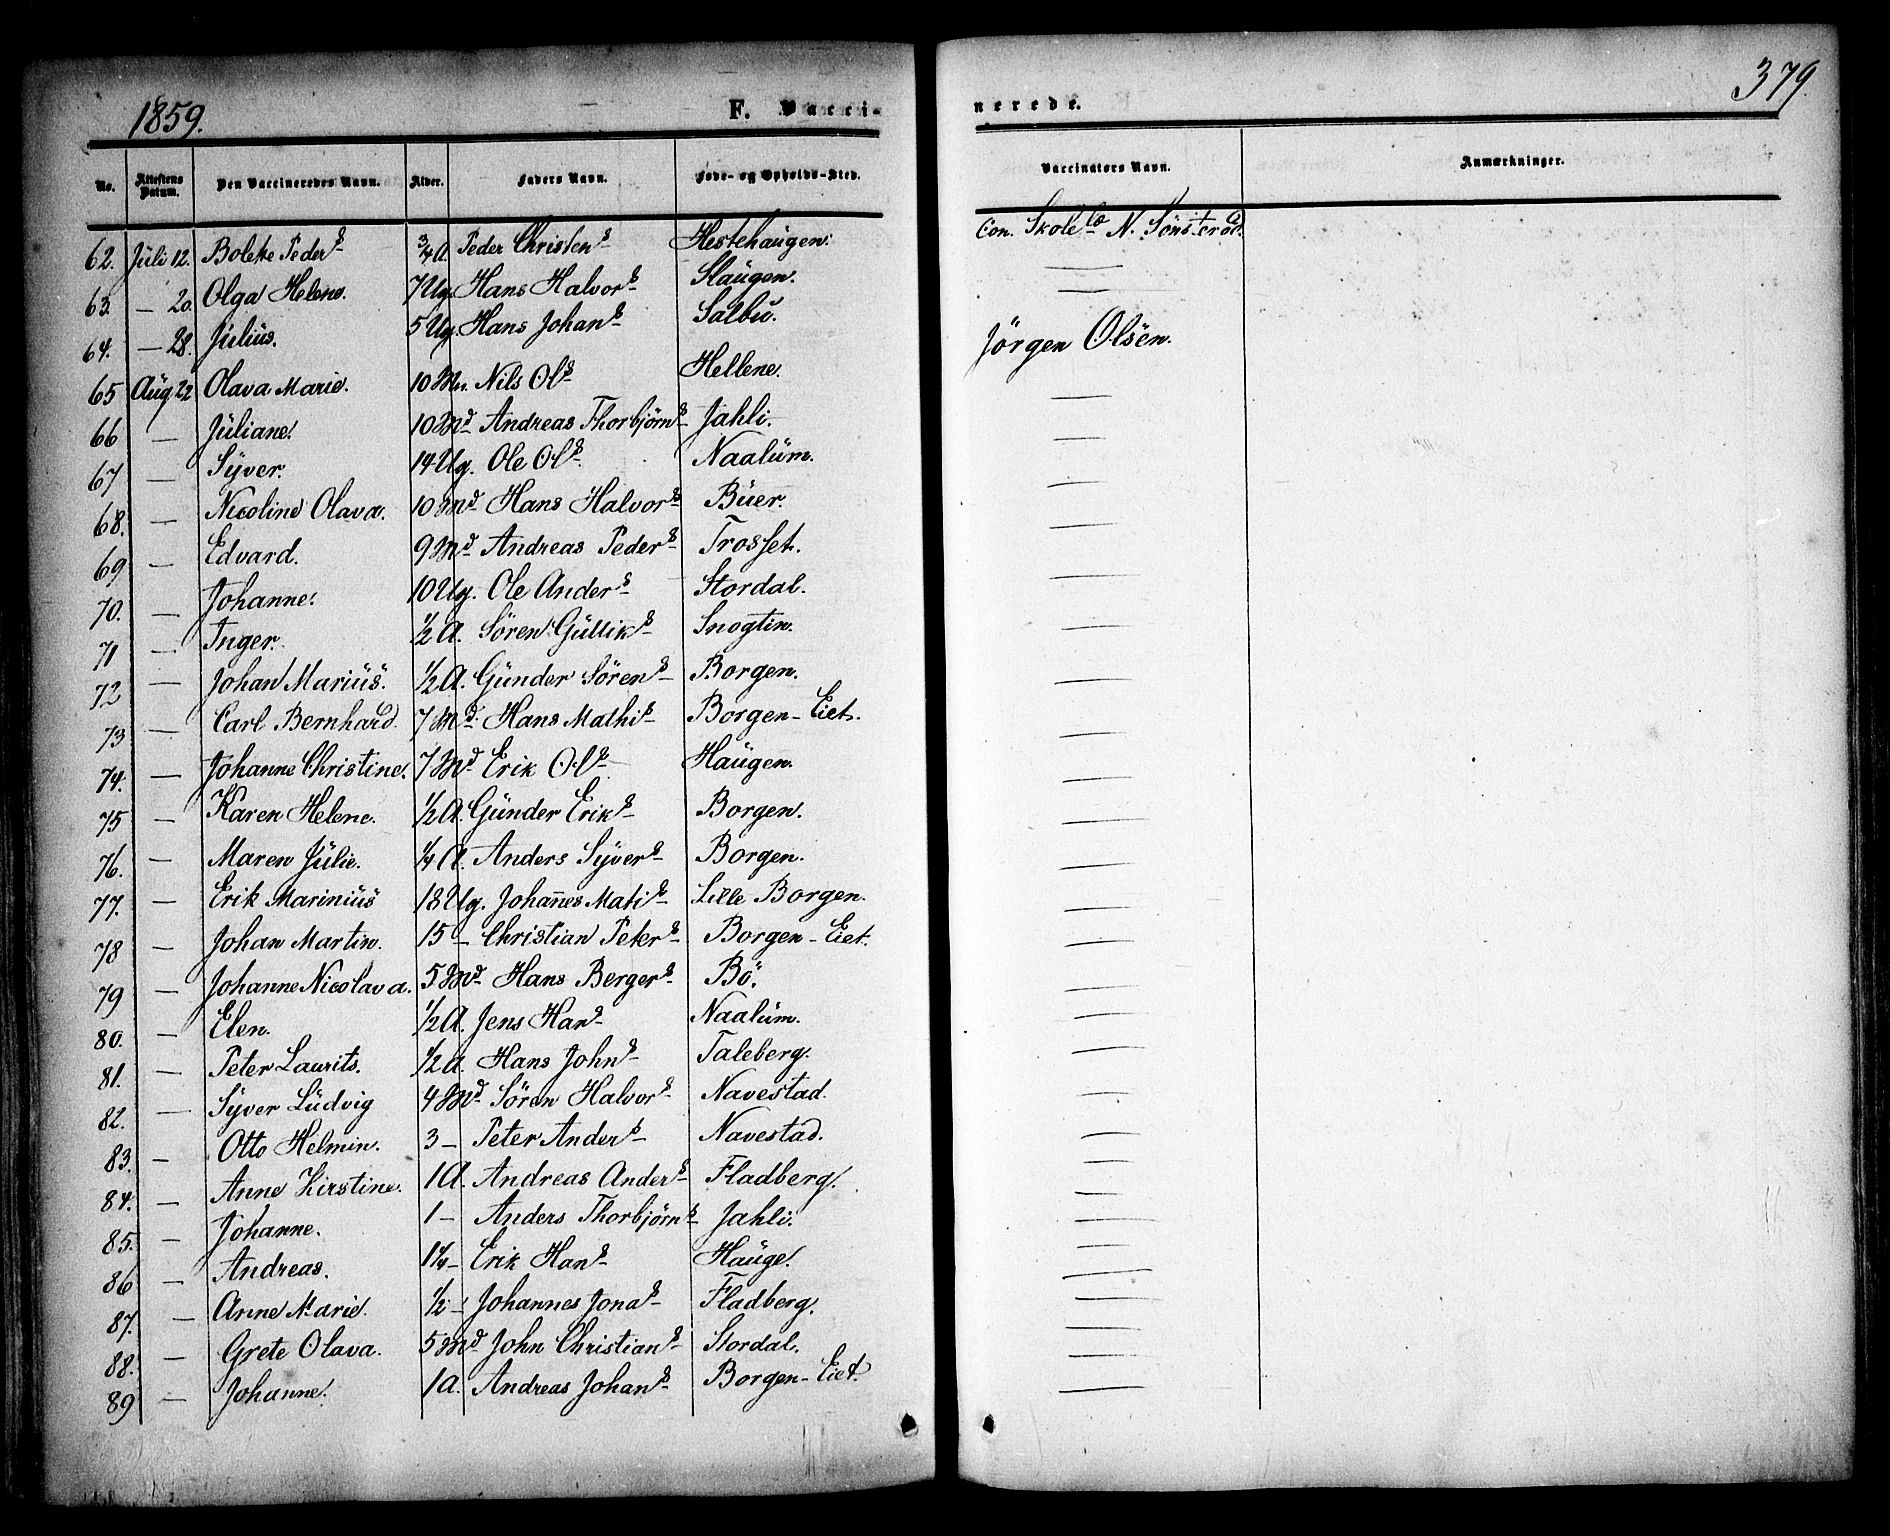 1859. F. Vacci-
nerede. 379.
No. Attestens Datum. Den Vaccineredes Navn. Alder. Faders Navn. Føde- og Opholds-Sted. Vaccinators Navn. Anmærkninger.
62. Juli 12. Bolette Peders- 3/4 A. Peder Christens- Hestehaugen. Con. Skole N. Sönsteröd.
63. — 20. Olga Helene. 7 Ug. Hans Halvors- Slaugen. —
64. — 28. Julius. 5 Ug. Hans Johans- Salbu. Jörgen Olsen.
65 Aug 22 Olava Marie. 10 Mn. Nils Ols- Hellene. —
66 — Juliane. 10 Md Andreas Thorbjörns- Jahli. —
67 — Syver. 14 Ug. Ole Ols- Naalum. —
68. — Nicoline Olava. 10 Md Hans Halvors- Buer. —
69 — Edvard. 9 Md Andreas Peders- Trosset. —
70. — Johanne. 10 Ug. Ole Anders- Stordal. —
71 — Inger. 1/2 A. Sören Gulliks- Snogtin. —
72 — Johan Marius. 1/2 A. Gunder Sörens- Borgen. —
73 — Carl Bernhard. 7 Md. Hans Mathis- Borgen-Eiet. —
74. — Johanne Christine. 7 Md Erik Ols- Haugen. —
75 — Karen Helene. 1/2 A. Gunder Eriks- Borgen. —
76. — Maren Julie. 1/4 A. Anders Syvers- Borgen. —
77. — Erik Marinius 18 Ug. Johannes Matis- Lille Borgen. —
78 — Johan Martin. 15 — Christian Peters- Borgen-Eiet. —
79 — Johanne Nicolava. 5 Md. Hans Bergers- Bö. —
80. — Elen. 1/2 A. Jens Hans- Naalum. —
81. — Peter Laurits. 1/2 A. Hans Johns- Taleberg. —
82. — Syver Ludvig 4 Md. Sören Halvors- Navestad. —
83. — Otto Helmin. 3 — Peter Anders- Navestad. —
84. — Anne Kirstine. 1 A. Andreas Anders- Fladberg. —
85. — Johanne. 1 — Anders Thorbjörns- Jahli. —
86 — Andreas. 1 1/4 — Erik Hans- Hauge. —
87. — Anne Marie. 1/2 — Johannes Jonas- Fladberg. —
88. — Grete Olava. 5 Md John Christians- Stordal. —
89 — Johanne. 1 A. Andreas Johans- Borgen-Eiet. —